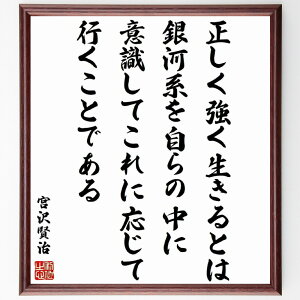 正しく強く生きるとは
銀河系を自らの中に
意識してこれに応じて
行くことである
宮沢賢治